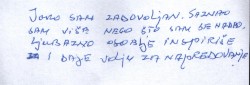 JAKO SAM ZADOVOLJAN. SAZNAO
SAM VIŠE NEGO ŠTO SAM SE NADAO.
LJUBAZNO OSOBLJE INSPIRIŠE
I DAJE VOLJU ZA NAPREDOVANJE